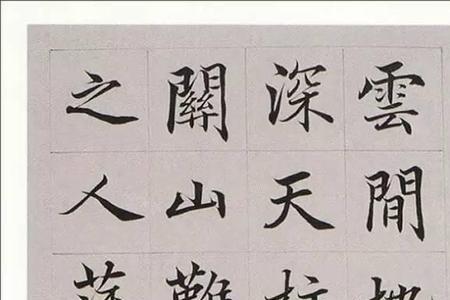 雲間
深天
關山難
之人